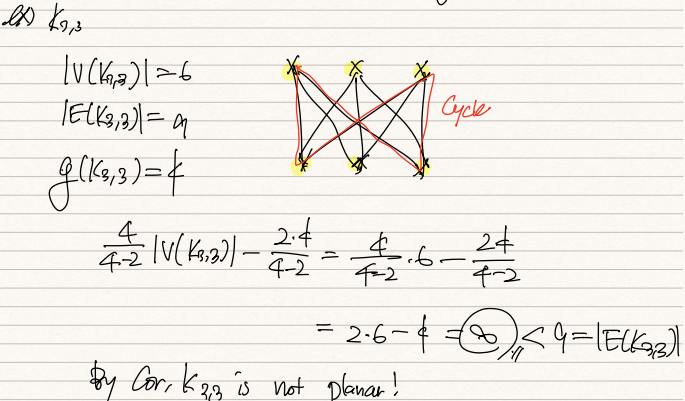 ex) K₃,₃
|V(K₃,₃)| = 6
|E(K₃,₃)| = 9
g(K₃,₃) = 4
Cycle
4/(4-2) |V(K₃,₃)| - 2·4/(4-2) = 4/(4-2) · 6 - 2·4/(4-2)
= 2·6 - 4 = 8 < 9 = |E(K₃,₃)|
By Cor, K₃,₃ is not planar!